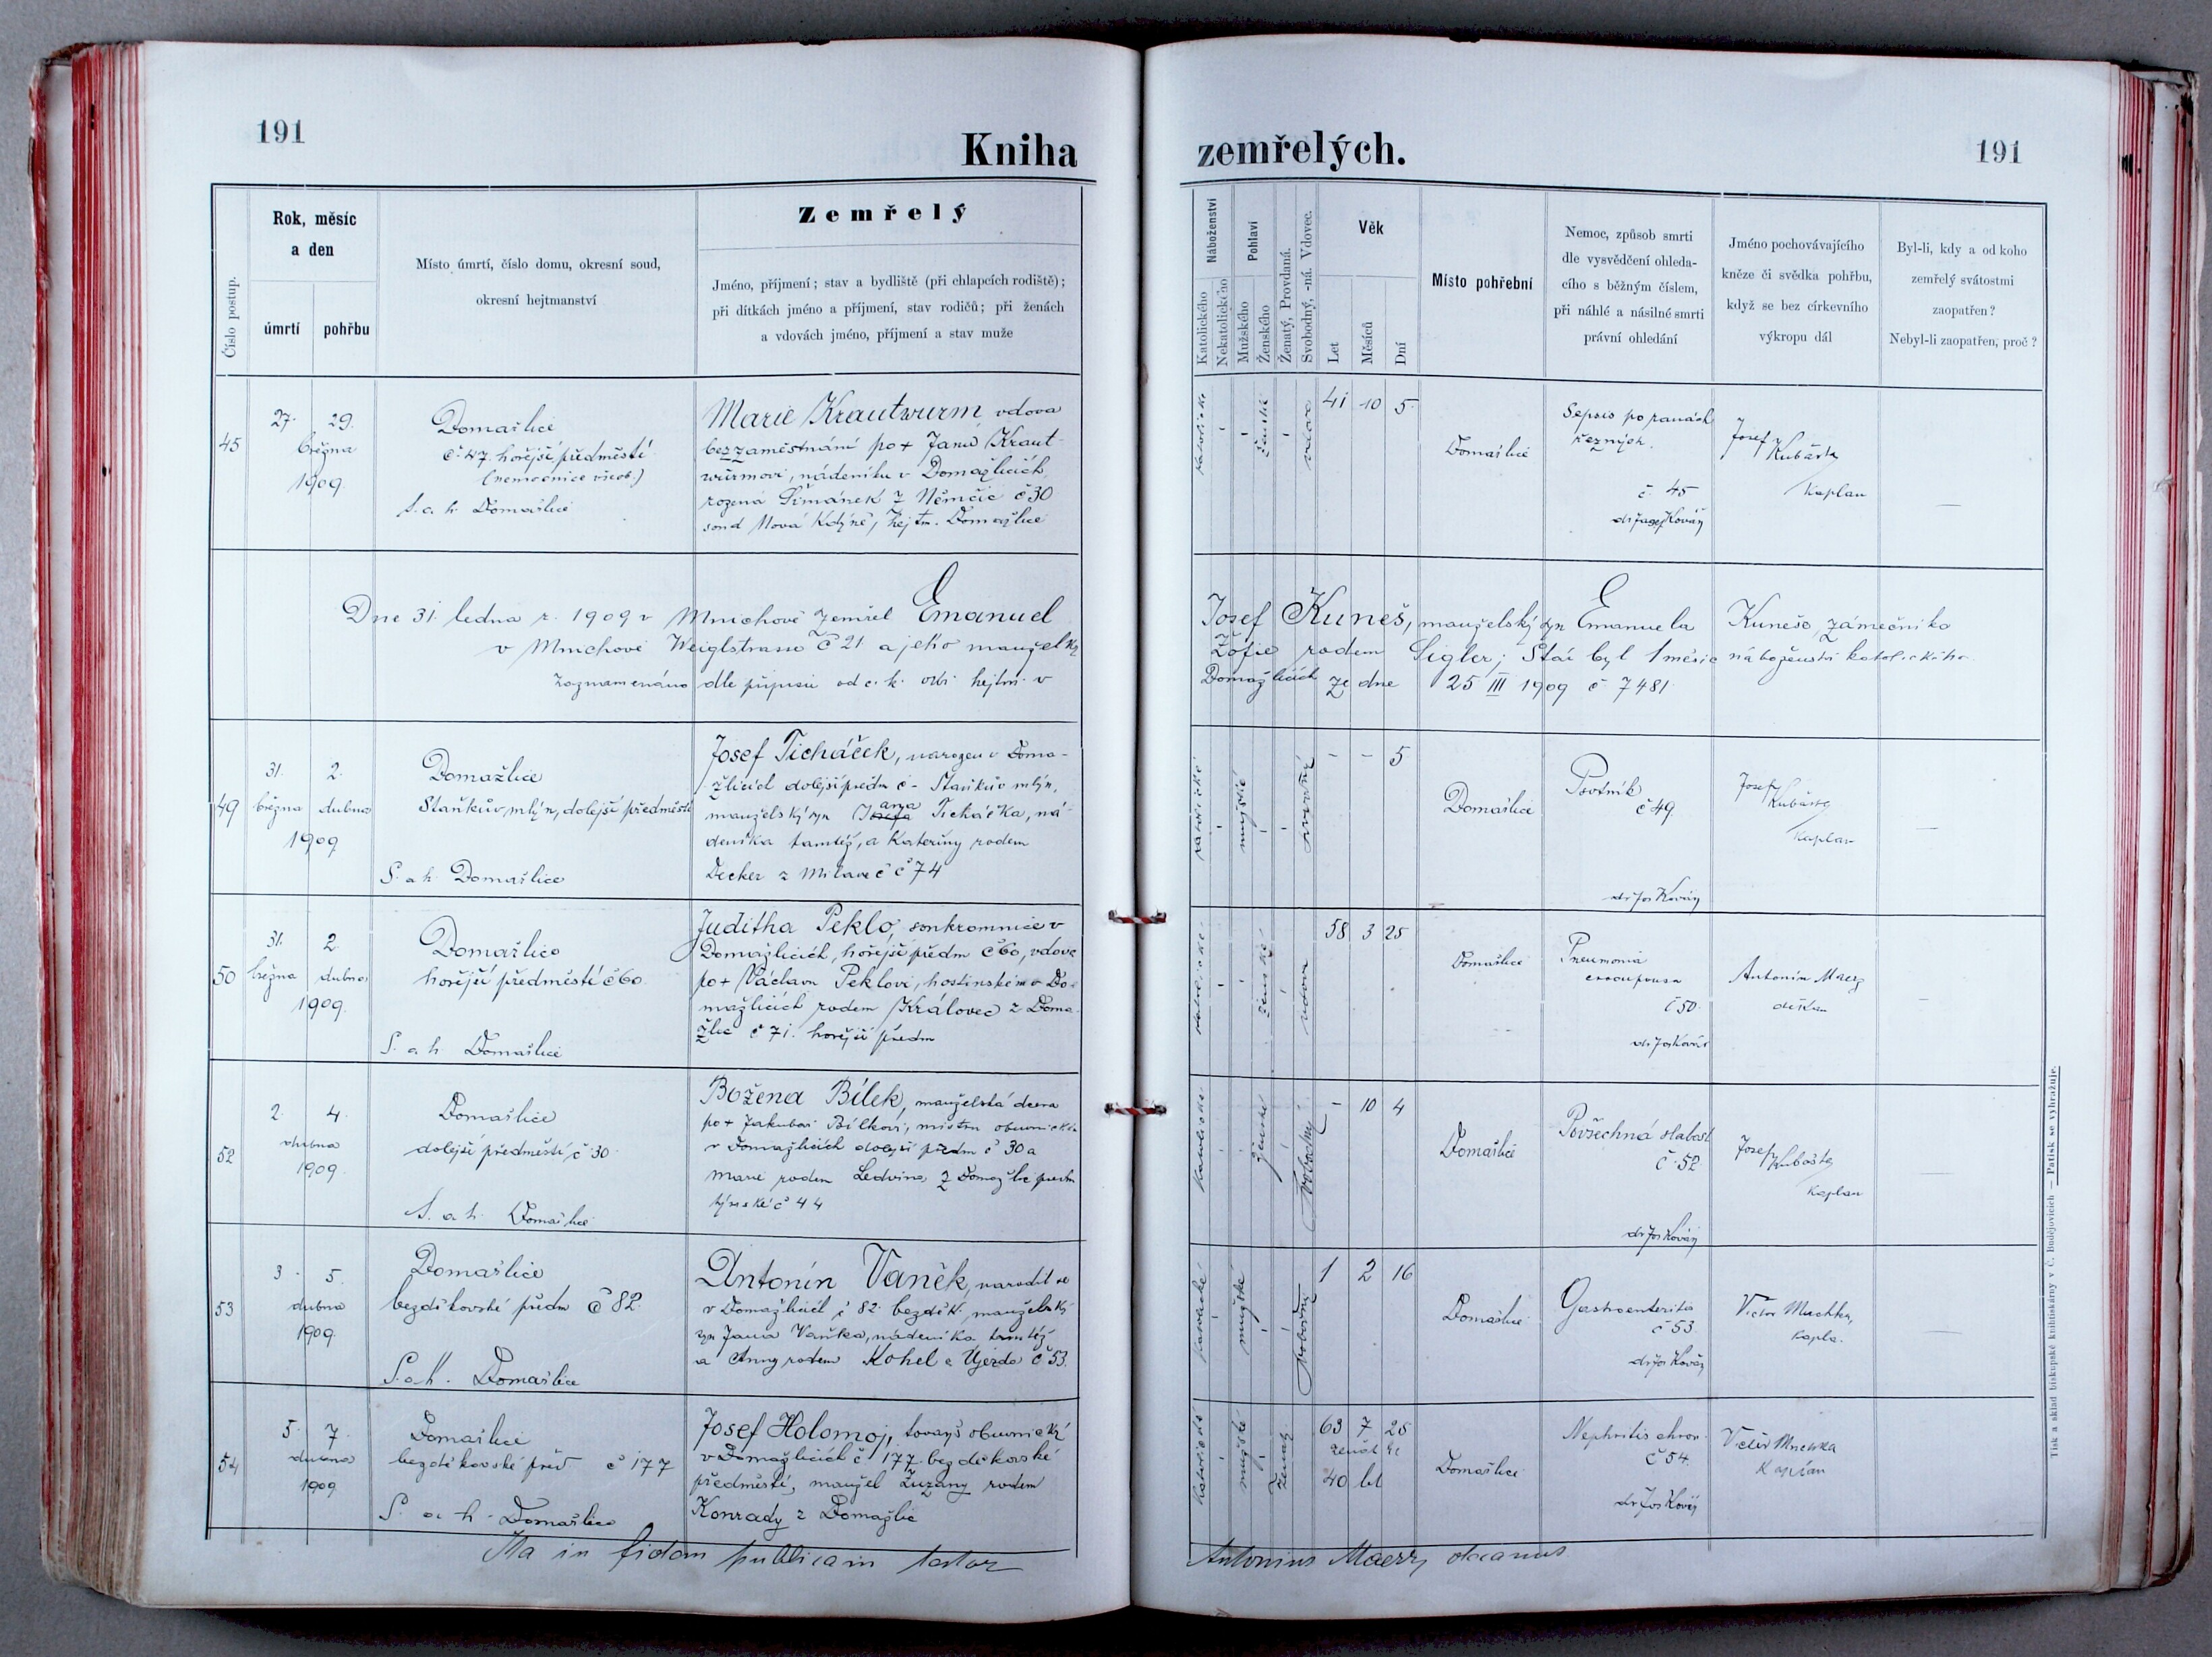 191
Kniha
zemřelých.
191
Číslo postup.
Rok, měsíc
a den
úmrtí
pohřbu
Místo úmrtí, číslo domu, okresní soud,
okresní hejtmanství
Zemřelý
Jméno, příjmení; stav a bydliště (při chlapcích rodiště);
při dítkách jméno a příjmení, stav rodičů; při ženách
a vdovách jméno, příjmení a stav muže
Náboženství
Katolického
Nekatolického
Pohlaví
Mužského
Ženského
Ženatý, Provdaná.
Svobodný, -ná. Vdovec.
Věk
Let
Měsíců
Dní
Místo pohřební
Nemoc, způsob smrti
dle vysvědčení ohleda-
cího s běžným číslem,
při náhlé a násilné smrti
právní ohledání
Jméno pochovávajícího
kněze či svědka pohřbu,
když se bez církevního
výkropu dál
Byl-li, kdy a od koho
zemřelý svátostmi
zaopatřen?
Nebyl-li zaopatřen, proč?
45
27. 29.
března
1909.
Domažlice
č. 47 hořejší předměstí
(nemocnice všeob.)
S. a h. Domažlice
Marie Krautwurm vdova
bez zaměstnání po + Janu Kraut-
wurmovi, nádeníku v Domažlicích,
rozená Šimánek z Němčic č 30
soud Nová Kdýně, hejtm. Domažlice
katolické
ženské
vdova
41 10 5
Domažlice
Sepsis po ranách
řezných.
č. 45
dr Josef Kovář
Josef Kubašta
Kaplan
Dne 31. ledna r. 1909 v Mnichově zemřel Emanuel
v Mnichově Weiglstrasse č 21 a jeho manželky
zaznamenáno dle přípisu od c. k. okr. hejtm. v
Josef Kuneš, manželský syn Emanuela Kuneše, zámečníka
Žofie rodem Sigler; Stár byl 1 měsíc náboženství katolického
Domažlicích ze dne 25 III 1909 č 7481
49
31. 2.
března dubna
1909
Domažlice
Staňkův mlýn, dolejší předměstí
S. a h. Domažlice
Josef Ticháček, narozen v Doma-
žlicích dolejší předm č - Staňkův mlýn,
manželský syn Josefa Ticháčka, ná-
deníka tamtéž, a Kateřiny rodem
Decker z Milavč č 74
katolické
mužské
svobodný
- - 5
Domažlice
Psotník
č 49.
dr Jos Kovář
Josef Kubašta
Kaplan
50
31. 2.
března dubna
1909.
Domažlice
hořejší předměstí č 60
S. a h. Domažlice
Juditha Peklo, soukromnice v
Domažlicích, hořejší předm č 60, vdova
po + Václavu Peklovi, hostinském v Do-
mažlicích rodem Královec z Doma-
žlic č 71. hořejší předm
katolické
ženské
vdova
58 3 25
Domažlice
Pneumonia
crouposa
č 50.
dr Jos Kovář
Antonín Maerz
děkan
52
2. 4.
dubna
1909.
Domažlice
dolejší předměstí č 30
S. a h. Domažlice
Božena Bílek, manželská dcera
po + Jakubovi Bílkovi, mistru obuvnickém
v Domažlicích dolejší předm č 30 a
Marie rodem Ledvina z Domažlic předm
týnské č 44
katolické
ženské
svobodný
- 10 4
Domažlice
Povšechná slabost
č. 52
dr Jos Kovář
Josef Kubašta
Kaplan
53
3. 5.
dubna
1909.
Domažlice
bezděkovské předm č 82.
S. a h. Domažlice
Antonín Vaněk, narodil se
v Domažlicích č 82. bezděk. manželský
syn Jana Vaňka, nádeníka tamtéž
a Anny rodem Kohel z Újezda č 53.
katolické
mužské
svobodný
1 2 16
Domažlice
Gastroenteritis
č 53
dr Jos Kovář
Victor Muchka,
kaplan
54
5. 7.
dubna
1909
Domažlice
bezděkovské před č 177
S. a h. Domažlice
Josef Holomoj, tovaryš obuvnický
v Domažlicích č 177. bezděkovské
předměstí, manžel Zuzany rodem
Konrady z Domažlic
katolické
mužské
ženatý
63 7 25
ženat
40 let
Domažlice
Nephritis chron.
č 54.
dr Jos Kovář
Victor Muchka
Kaplan
Ita in fidem publicam testor
Antonius Maerz, decanus
Tisk a sklad biskupské knihtiskárny v Č. Budějovicích — Patisk se vyhražuje.